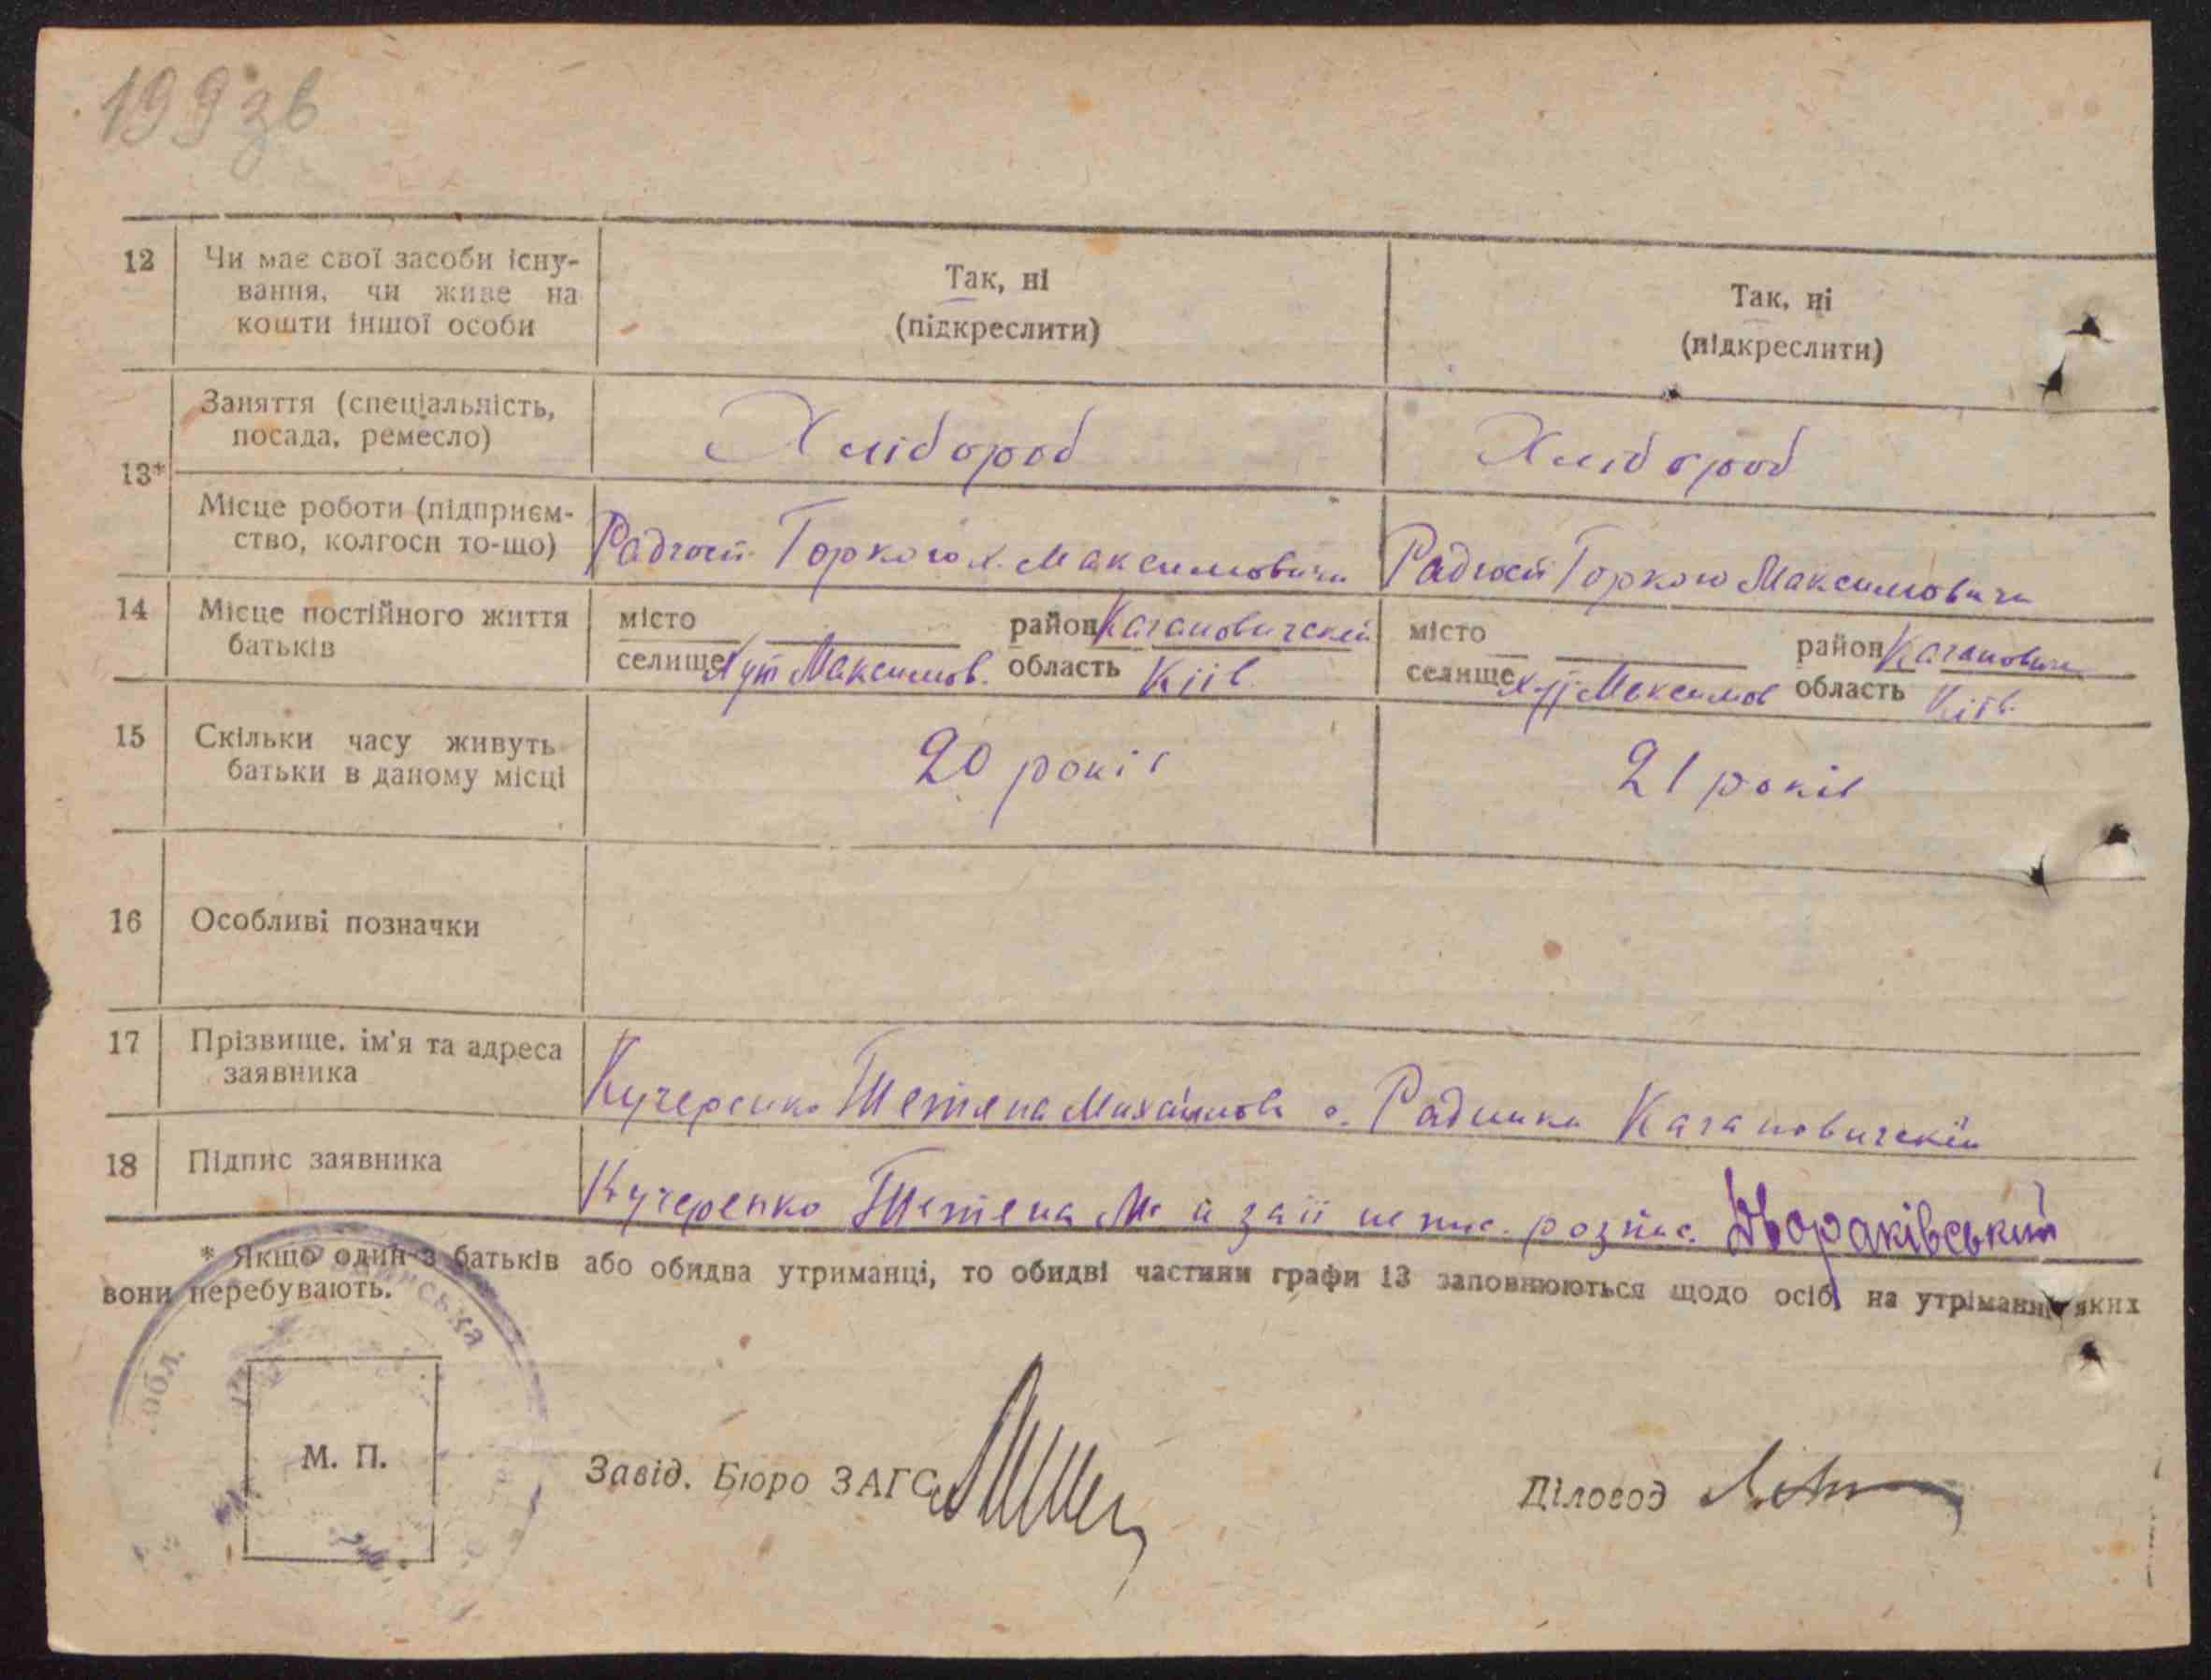 199 зв
12 Чи має свої засоби існу-
вання, чи живе на
кошти іншої особи
Так, ні
(підкреслити)
Так, ні
(підкреслити)
13*
Заняття (спеціальність,
посада, ремесло)
Хлібороб
Хлібороб
Місце роботи (підприєм-
ство, колгосп то-що)
Радгосп Горкого х. Максимовичи
Радгосп Горкого Максимовичи
14 Місце постійного життя
батьків
місто район Кагановичский
селище Хут Максимов. область Київ.
місто район Каганович
селище Хут Максимов область Київ.
15 Скільки часу живуть
батьки в даному місці
20 років
21 років
16 Особливі позначки
17 Прізвище, ім'я та адреса
заявника
Кучеренко Тетяна Михайлов с. Радинка Кагановичский
18 Підпис заявника
Кучеренко Тетяна М. й за її непис. розпис. Двораківський
* Якщо один з батьків або обидва утриманці, то обидві частини графи 13 заповнюються щодо осіб, на утріманні яких
вони перебувають.
обл.
М. П.
Завід. Бюро ЗАГС
Діловод